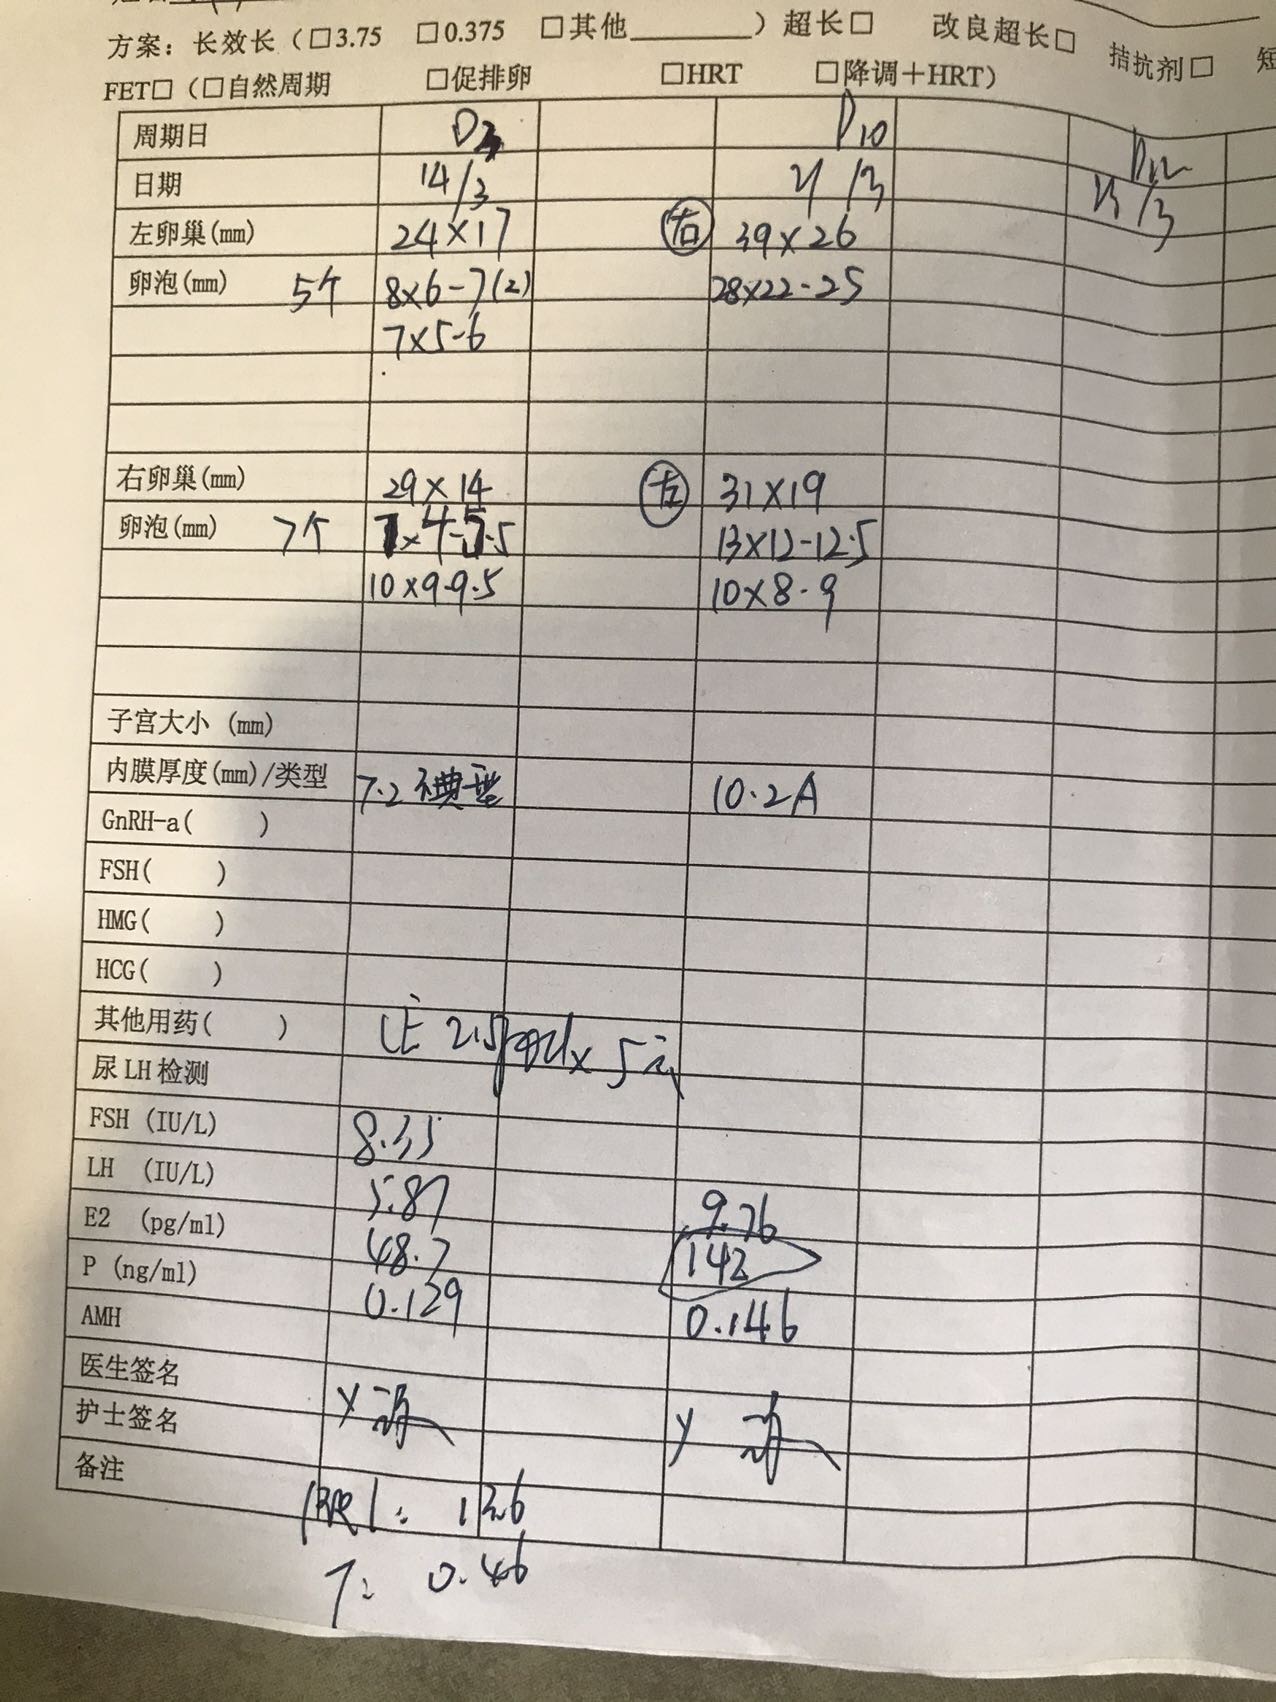 方案：长效长（□3.75 □0.375 □其他________）超长□ 改良超长□ 拮抗剂□ 短
FET□（□自然周期 □促排卵 □HRT □降调＋HRT）
周期日 D3 D10 D12
日期 14/3 21/3 23/3
左卵巢(mm) 24×17 右 39×26
卵泡(mm) 5个 8×6-7(2) 28×22-25
7×5-6
右卵巢(mm) 29×14 左 31×19
卵泡(mm) 7个 7×4-5.5 13×12-12.5
10×9-9.5 10×8-9
子宫大小 (mm)
内膜厚度(mm)/类型 7.2 10.2A
GnRH-a( )
FSH( )
HMG( )
HCG( )
其他用药( ) 2.5 × 5
尿LH检测
FSH (IU/L) 8.35
LH (IU/L) 5.87 9.76
E2 (pg/ml) 48.7 142
P (ng/ml) 0.129 0.146
AMH
医生签名
护士签名
备注
PRL: 12.6
T: 0.46